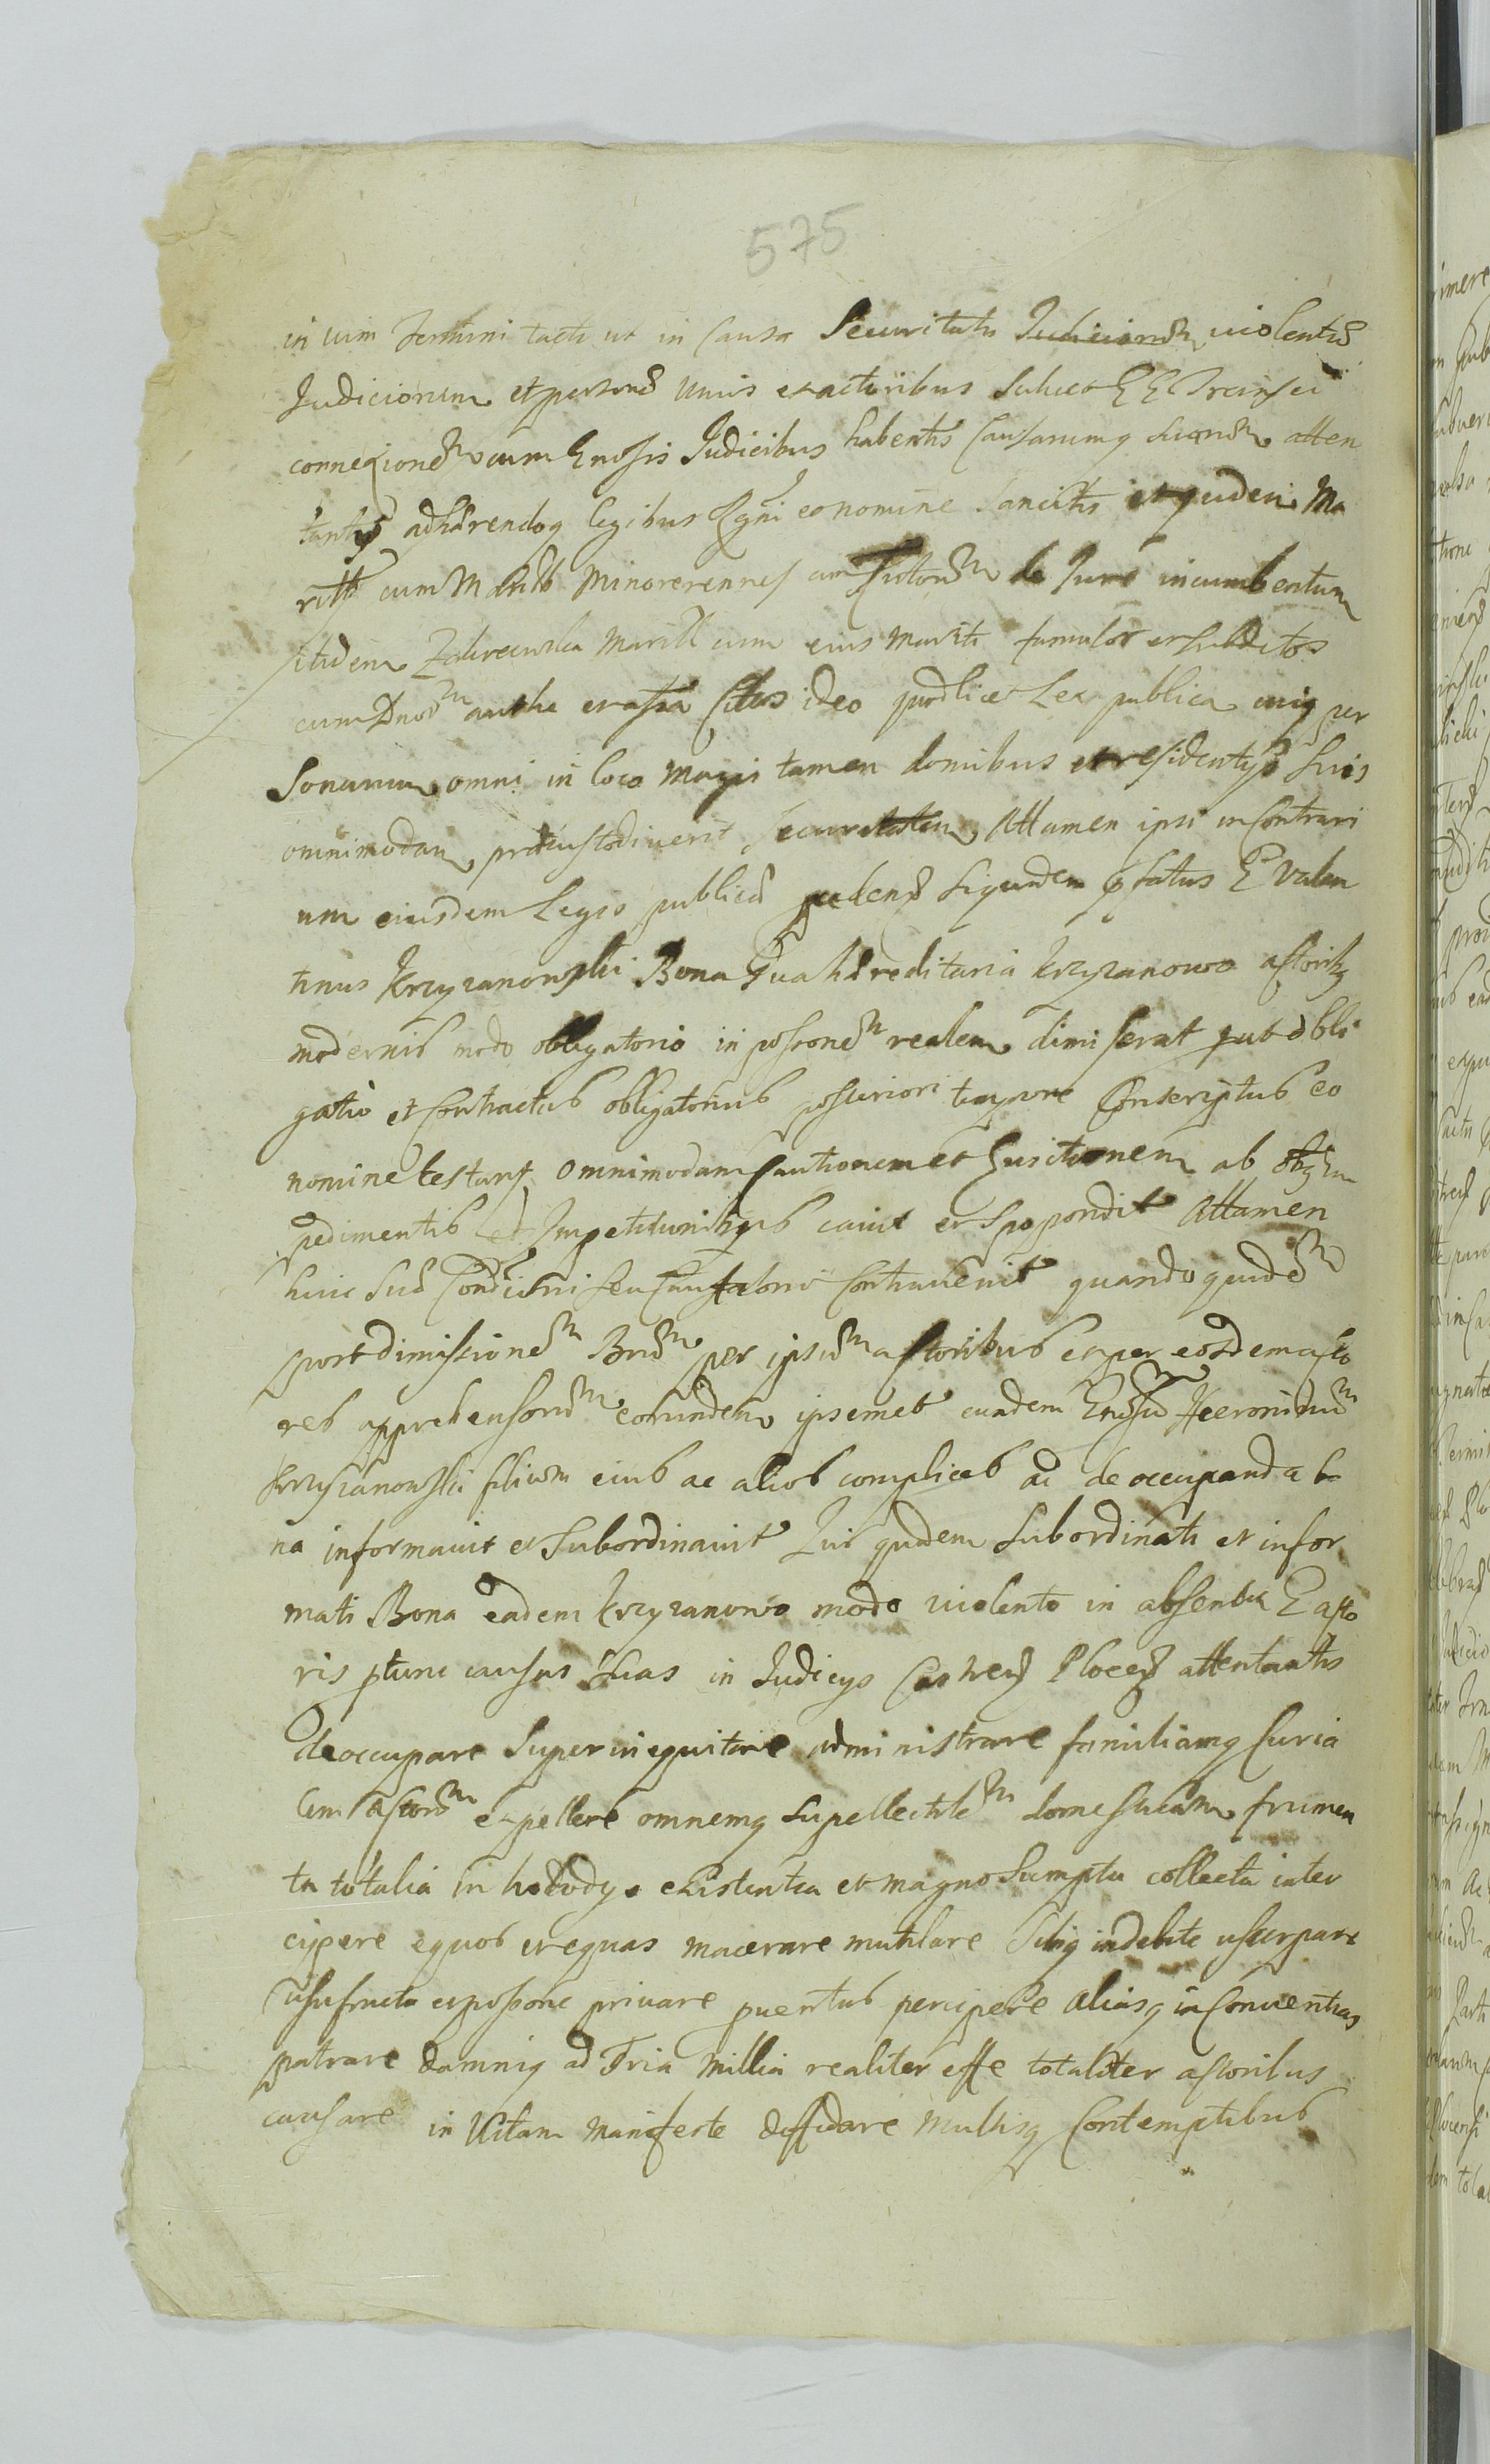 575
in vim Termini tacti ut in Causa Securitatis Judiciorum violentiæ
Judiciorum et personæ unius ex actoribus
connexionem cum Judicibus habentis Causarumq suarum atten
tantis adhærendoq legibus Regni eo nomine Sancitis et quidem Ma
ritti cum Minorennes cum Tutorum de Jure incumbentum
itidem Maritt cum eius mariti famulos et subditos
cum authe extra ideo quod licet Lex publica cuiq per
sonarum omni in loco magis tamen domibus et residentys suis
omnimodam præcustodiverit Securitatem, Attamen ipsi in Contrari
um eiusdem Legis publicæ siquidem pfatus G Valen
tinus Krzyzanowski Bona Sua hæreditaria Krzyzanowo actoribq
modernis modo obligatorio in possonem realem dimiserat put obli
gatio et Contractus obligatorius posteriori tempore Conscriptus eo
nomine testant omnimodam Cautionem et Evictionem ab Im
pedimentis et Impetitionibus cavit et spopondit Attamen
huic suæ Condicioni seu Contravenit quandoquidem
post dimissionem per ipsum actoribus et per eosdem acto
res eorundem ipsemet eundem Hieronimum
Krzyzanowski filium eius ac alios complices ad deoccupanda bo
na informavit et Subordinavit Qui quidem Subordinati et infor
mati Bona eadem Krzyzanowo modo violento in absentia G acto
ris ptunc causas suas in Judicys Castren Plocen attentantis
deoccupare Superinequitare administrare familiamq Curia
lem actorum expellere omnemq supellectilem domesticam frumen
ta totalia in existentia et magno Sumptu collecta inter
cipere equos et equas macerare mutilare Sibiq indebite usurpare
usufructu et possone privare pventus percipere aliasq inConventias
patrare damniq ad Tria Millia realiter esse totaliter actoribus
causare in Vitam manifeste diffidare Multisq Contemptibus